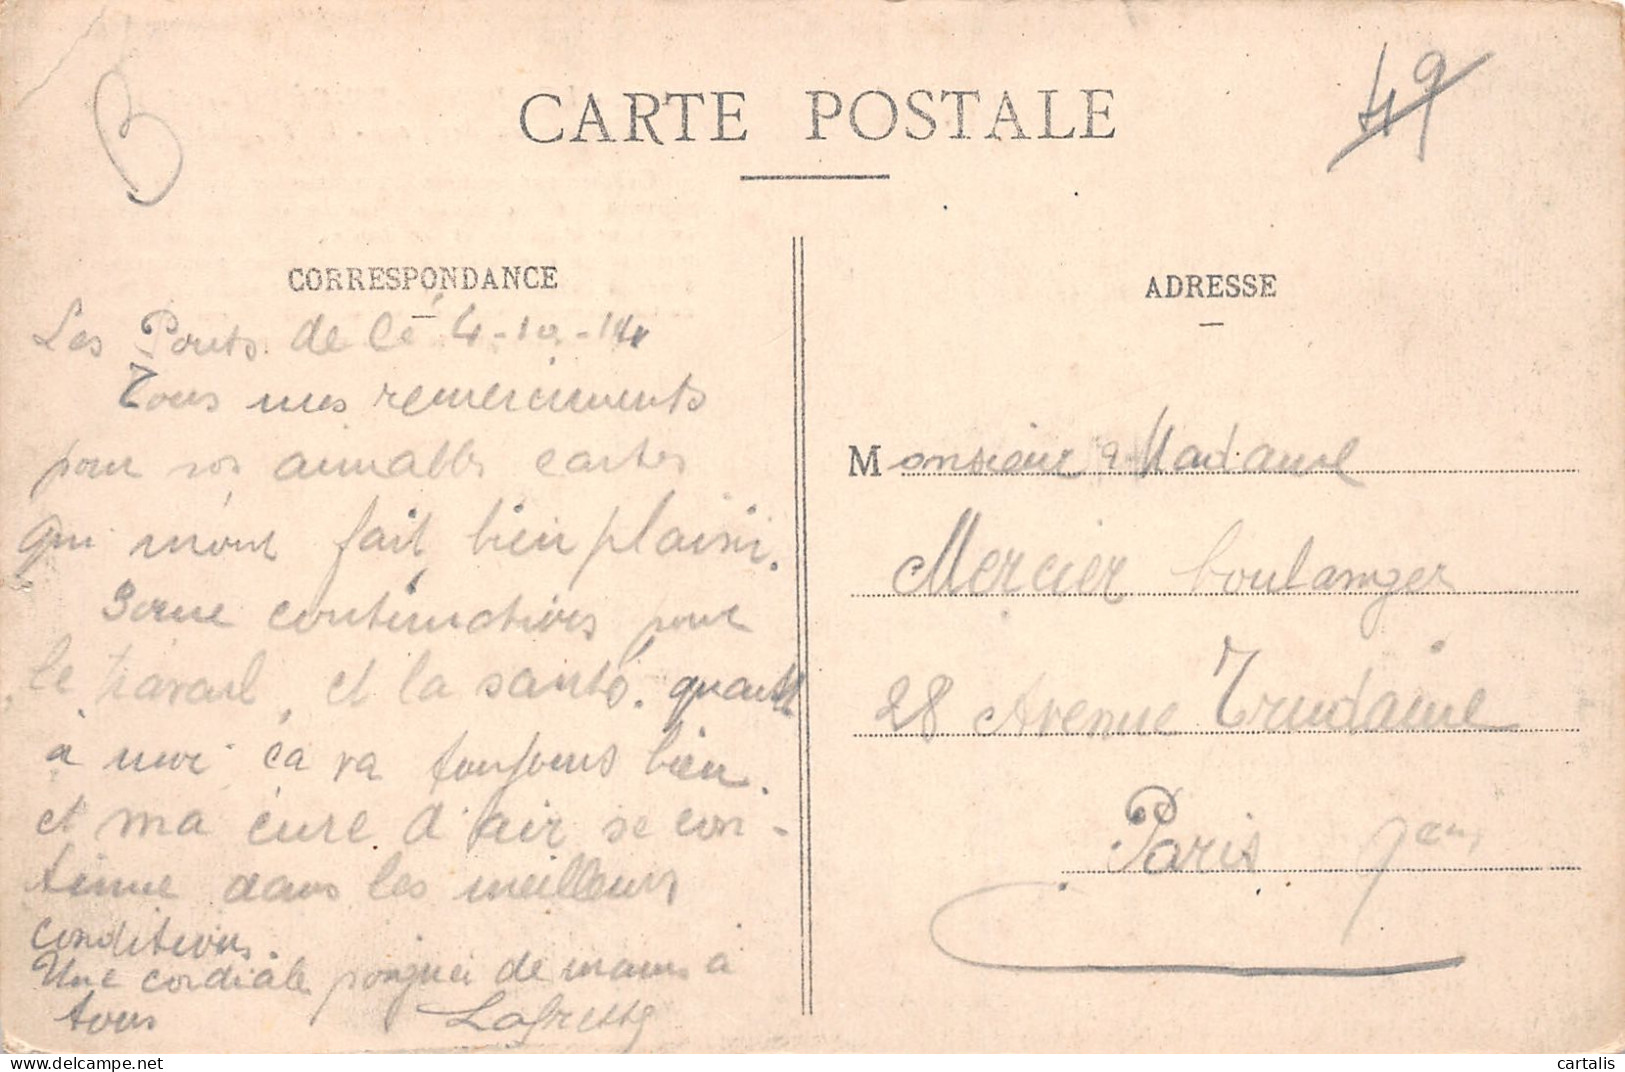 49
CARTE POSTALE
CORRESPONDANCE
Les Ponts de Cé 4-10-14
Tous mes remerciments
pour vos aimables cartes
qui m'ont fait bien plaisir.
Bonne continuations pour
le travail, et la santé. quant
à moi ça va toujours bien.
et ma cure d'air se con-
tinue dans les meilleurs
conditions.
Une cordiale poignei de mains à
tous
ADRESSE
Monsieur & Madame
Mercier boulanger
28 Avenue Trudaine
Paris
cartalis